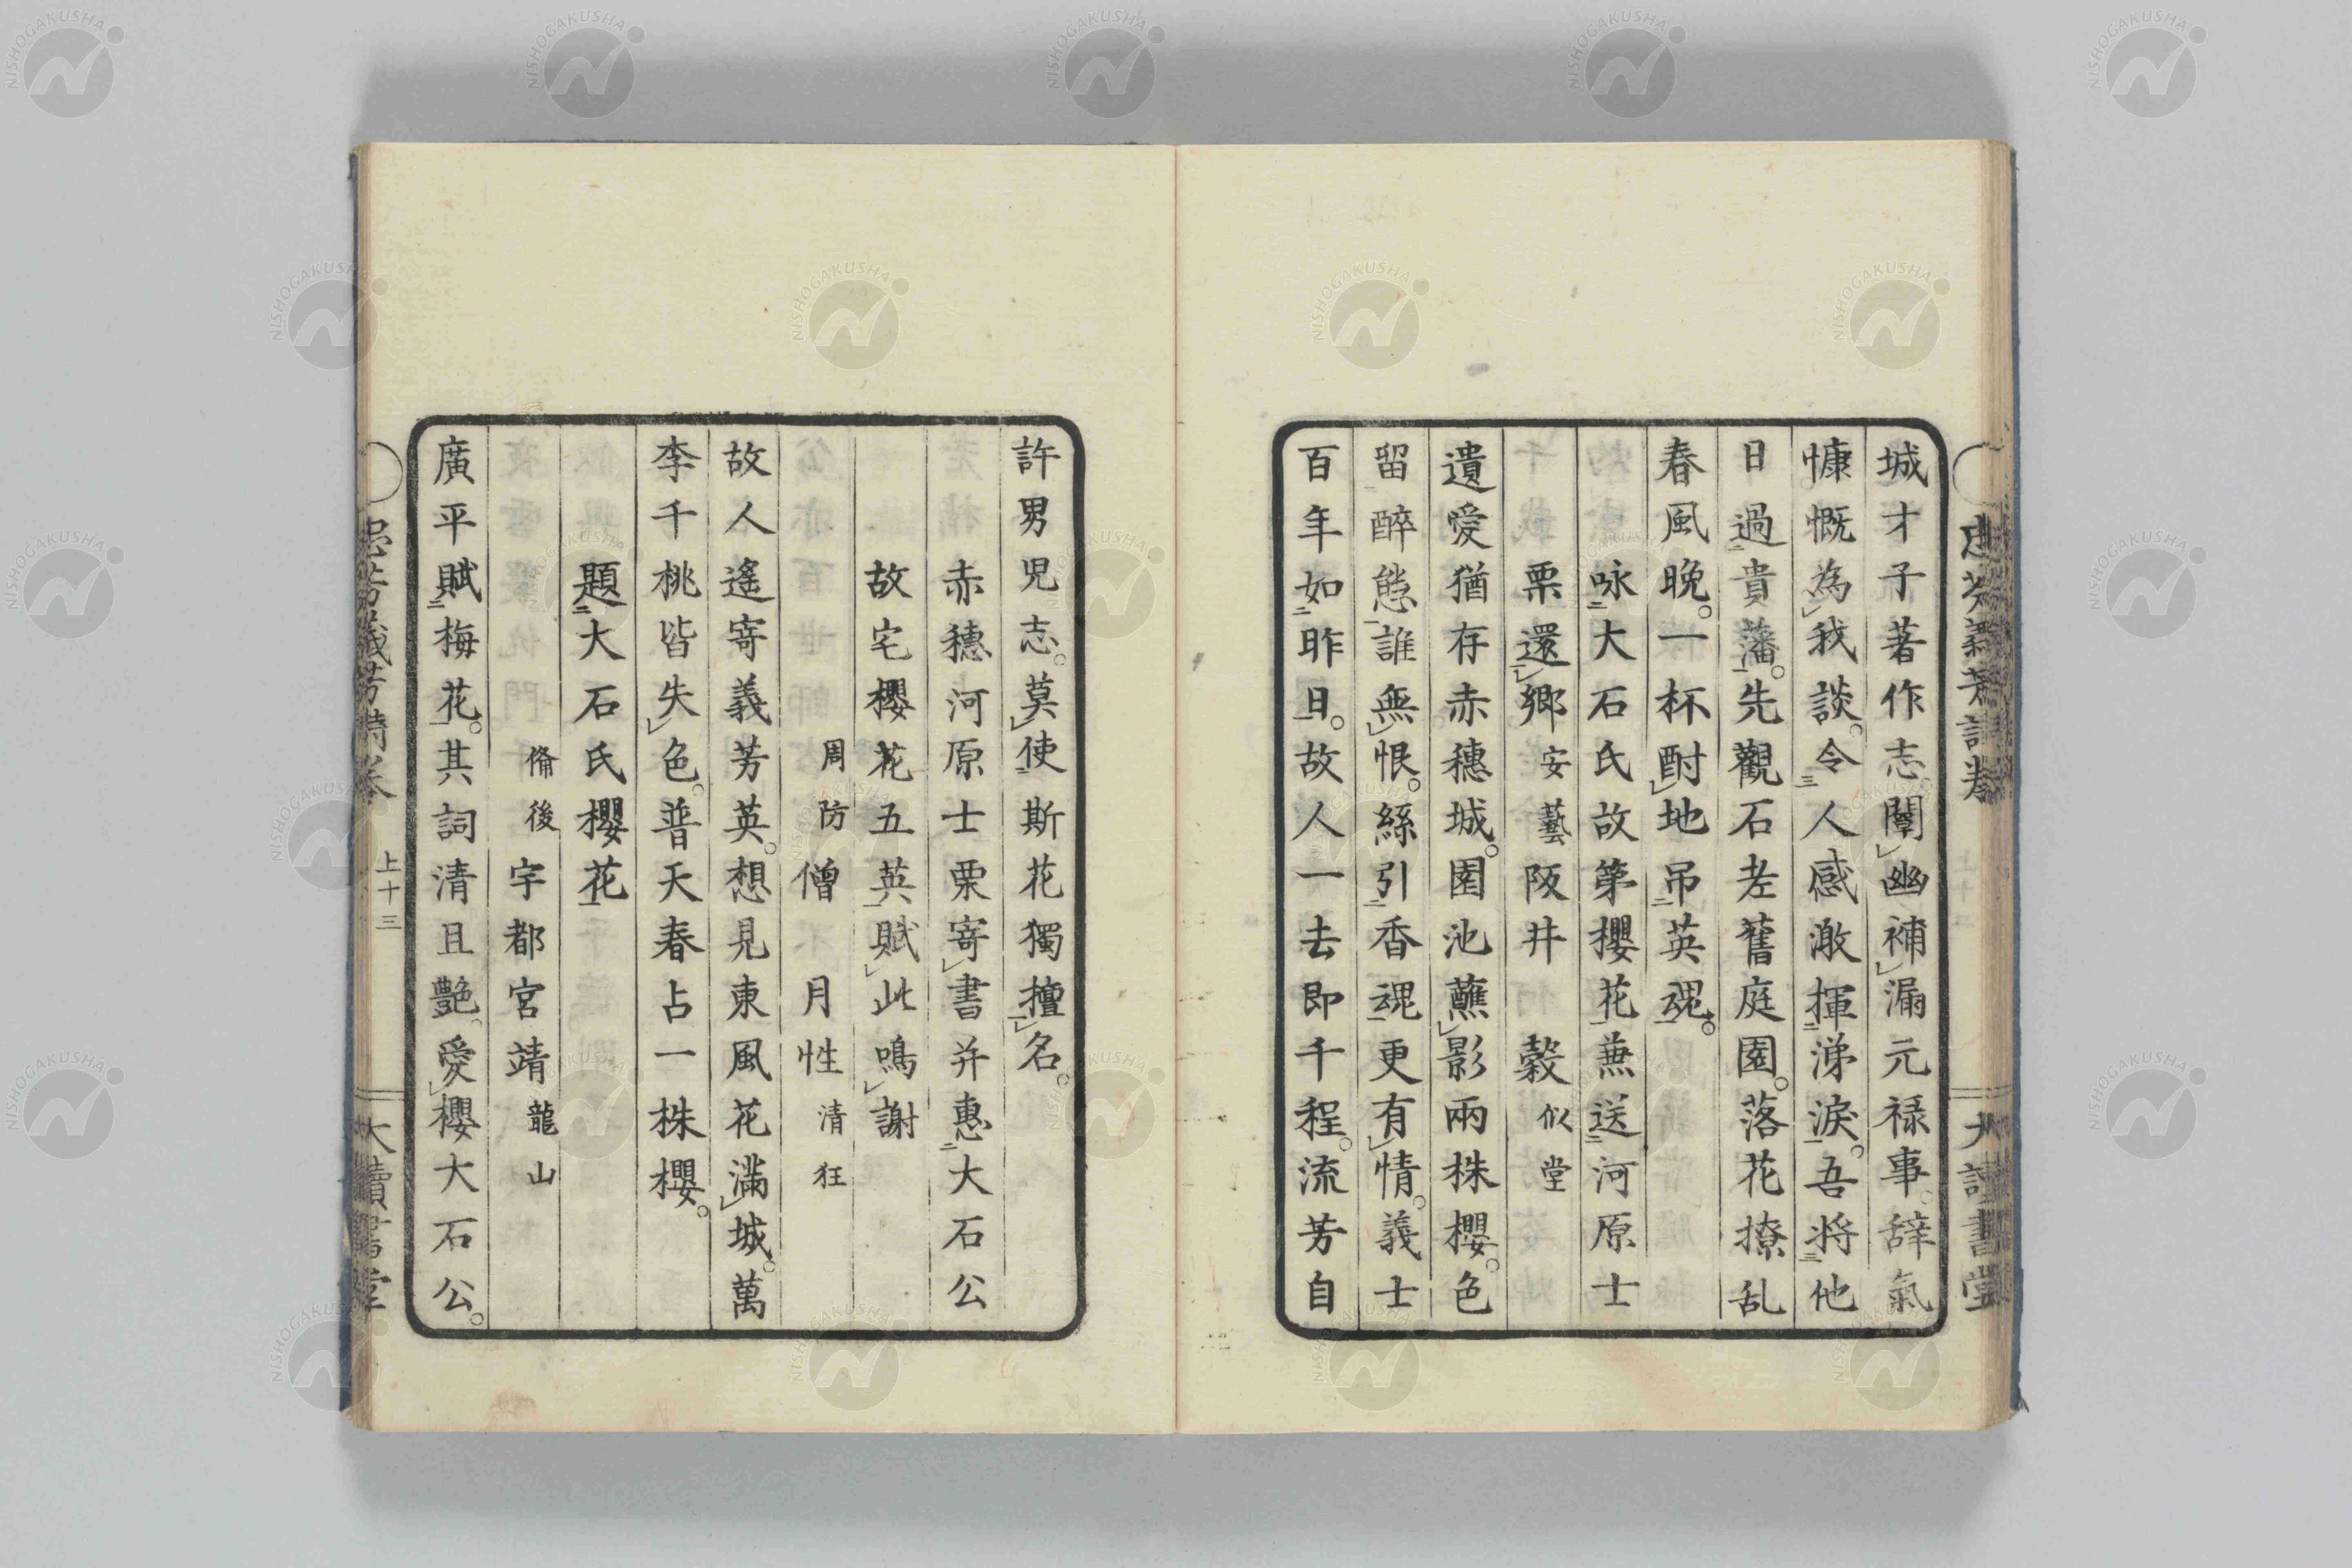 城才子著作志闡幽補漏元禄事辞氣
慷慨為我談令人感激揮涕淚吾将他
日過貴藩先觀石老舊庭園落花撩乱
春風晚一杯酎地吊英魂
咏大石氏故第櫻花兼送河原士
栗還鄉 安藝 阪井 穀 似堂
遺愛猶存赤穗城園池蘸影兩株櫻色
留醉態誰無恨絲引香魂更有情義士
百年如昨日故人一去即千程流芳自
許男児志莫使斯花獨擅名
赤穗河原士栗寄書并惠大石公
故宅櫻花五英賦此鳴謝
周防 僧 月性 清狂
故人遙寄義芳英想見東風花滿城萬
李千桃皆失色普天春占一株櫻
題大石氏櫻花
備後 宇都宮靖 龍山
廣平賦梅花其詞清且艷愛櫻大石公
忠芬義芳詩卷 上十三 大讀書堂
NISHOGAKUSHA